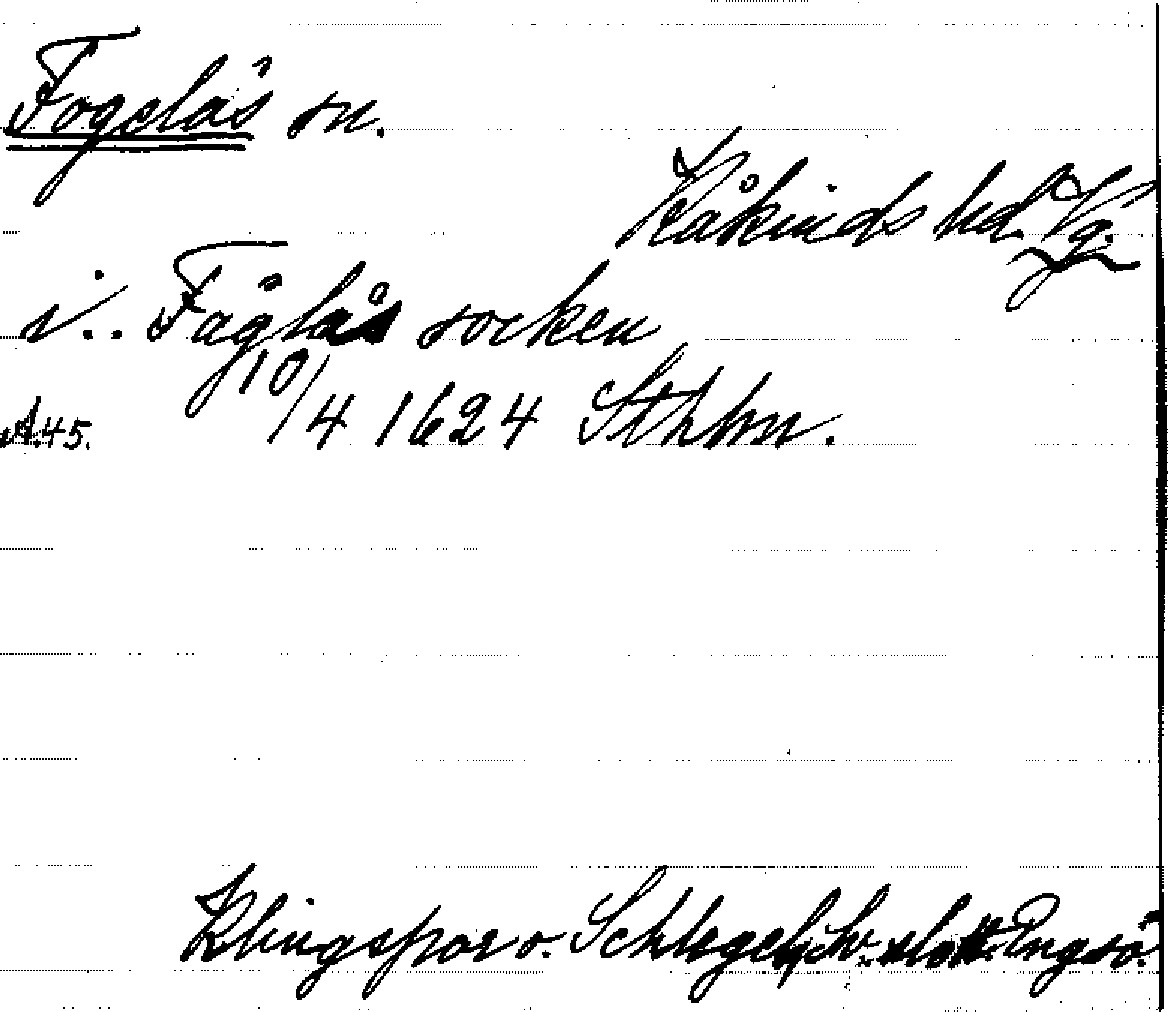 Fogelås sn.
Kåkinds hd. Vg.
i.. Fåglås socken
10/4 1624 Sthlm.
45.
Klingspor o. Schlegel, slott. Engsö.